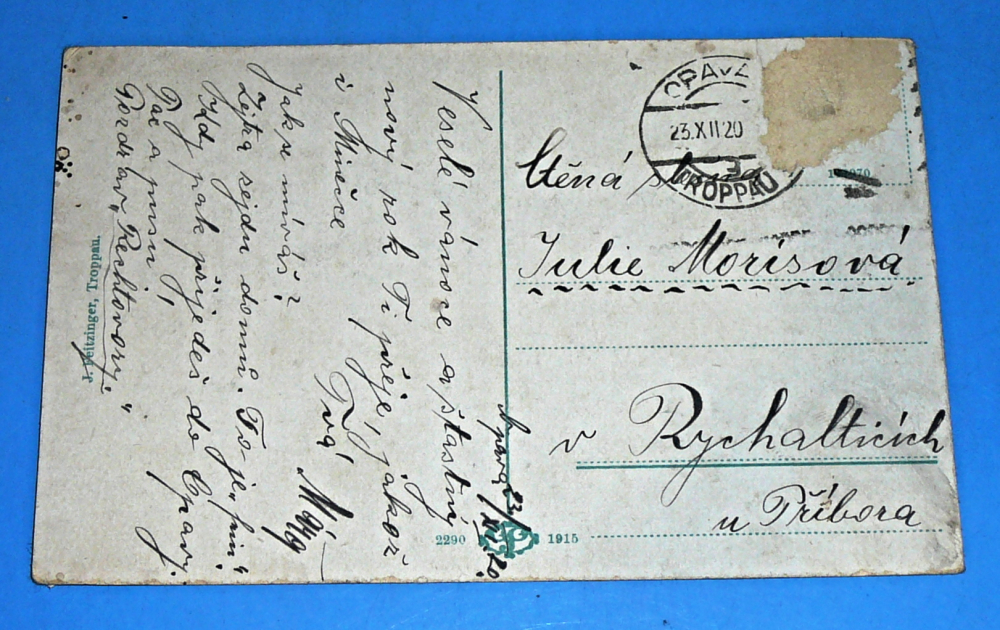 Opava 23/XII.20.
Veselé vánoce a šťastný
nový rok Ti přeje, jakož
i Mínečce
Tvá
Máňa
Jak se míváš?
Zejtra jejdu domů. To je „fin“
Kdy pak přijedeš do Opavy.
Pac a pusu
Pozdrav „Rechtvory“
J. Weitzinger, Troppau.
2290
1915
OPAVA
23.XII 20
3
TROPPAU
Ctěná slečna
Julie Morisová
v Rychalticích
u Příbora